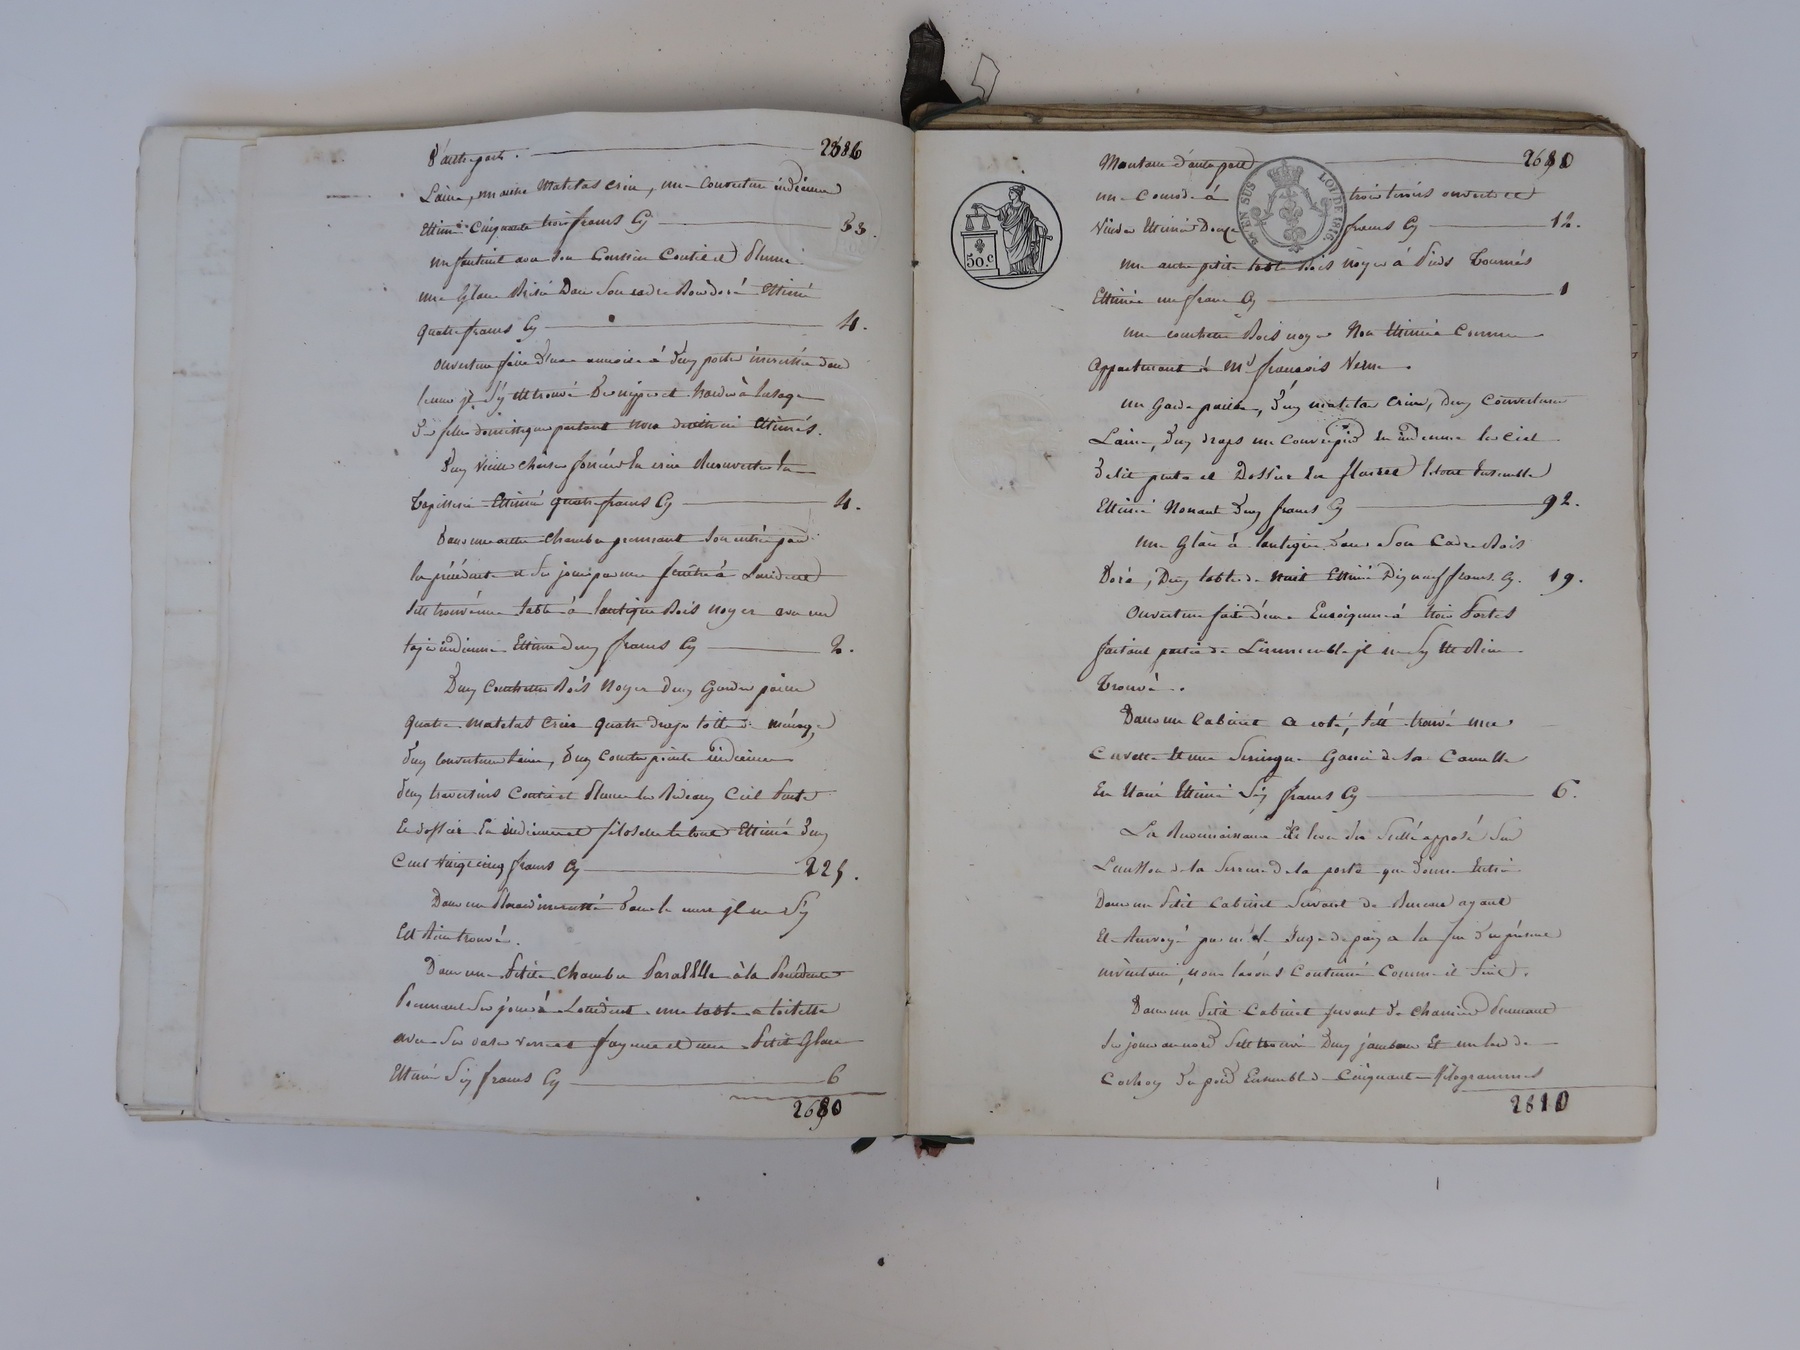 D'autre part. 2386
Laine, un autre Matelas crin, une Couverture indienne
Estimé Cinquante trois francs Cy 53.
un fauteuil avec son Coussin Coutil et Plume
une Glace Brisée Dans son cadre Bois doré Estimé
quatre francs Cy 4.
ouverture faite d'une armoire à deux portes incrustée dans
le mur il s'y est trouvé Des nippes et hardes à l'usage
Deux vieilles chaises foncées En crin Recouvertes En
Tapisserie Estimé quatre francs Cy 4.
Dans une autre chambre prennant son entrée par
la précédente et ses jours par une fenêtre à L'occident
s'est trouvé une Table à l'antique Bois noyer avec un
tapis indienne Estimé deux francs Cy 2.
Deux Couchettes Bois Noyer Deux Gardes paille
quatre Matelas Crin quatre draps toille de ménage
deux Couvertures Laine, deux Courtepointe indienne
deux traversins Coutil et Plume les Rideaux Ciel Pente
Et dossier En indienne et filoselle le tout Estimé Deux
Cent vingt cinq francs Cy 225.
Dans un Placard incrusté dans le mur il ne s'y
Est Rien trouvé.
Dans une Petite Chambre Paralelle à la Précédente
Prennant ses jours à L'occident une table a toilette
avec ses vases verre et fayence et une Petite Glace
Estimé Six francs Cy 6
2680
Montant d'autre part 2680
une Comode à trois tiroirs ouverte et
vuide Estimé Douze francs Cy 12.
une autre petite table Bois noyer à Pieds Tournés
Estimée un franc Cy 1
une couchette Bois noyer Non Estimée Comme
Appartenant à Mr françois
un Garde paille, deux matelas Crin, deux Couvertures
Laine, deux draps une Couvrepied En indienne le ciel
de lit pente et Dossier En le tout Ensemble
Estimé Nonante deux francs Cy 92.
une Glace à l'antique dans son Cadre Bois
Doré, Deux tables de Nuit Estimé Dix neuf francs Cy. 19.
Ouverture faite d'une Encoignure à trois Portes
faisant partie de L'immeuble il ne s'y est Rien
Trouvé.
Dans un Cabinet a coté, s'est trouvé une
Cuvette Et une Seringue Garnie de sa Canulle
En Etain Estimé Six francs Cy 6.
La Reconnaissance et levée du Scellé apposé Sur
L'ausson de la Serrure de la porte qui donne Entrée
Dans un Petit Cabinet Servant de Bureau ayant
Eté Renvoyé par mr le Juge de paix a la fin du présent
inventaire, nous l'avons Continué Comme il Suit.
Dans un Petit Cabinet servant de Prennant
ses jours au nord S'est trouvé Deux jambons Et un lard de
Cochon du poid Ensemble de Cinquante Kilogrammes
2810
50.c
EN SUS
LOI DE 1816